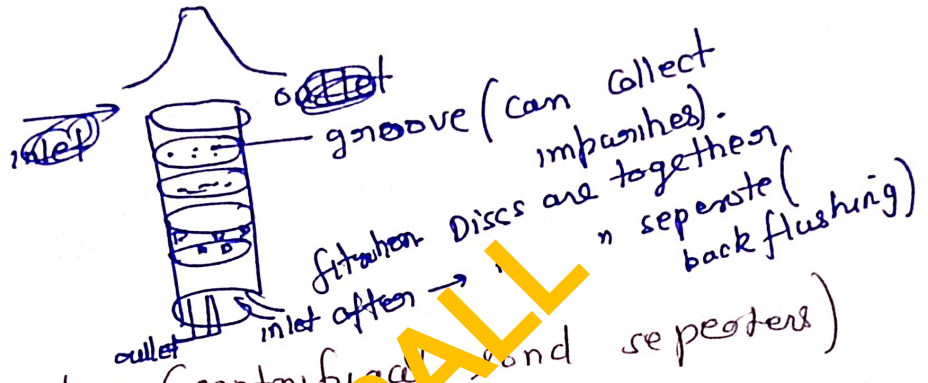 outlet
inlet
groove (can collect
impurities).
filtration Discs are together
inlet after → " " seperate (
back flushing)
outlet
sand seperaters)
ALL